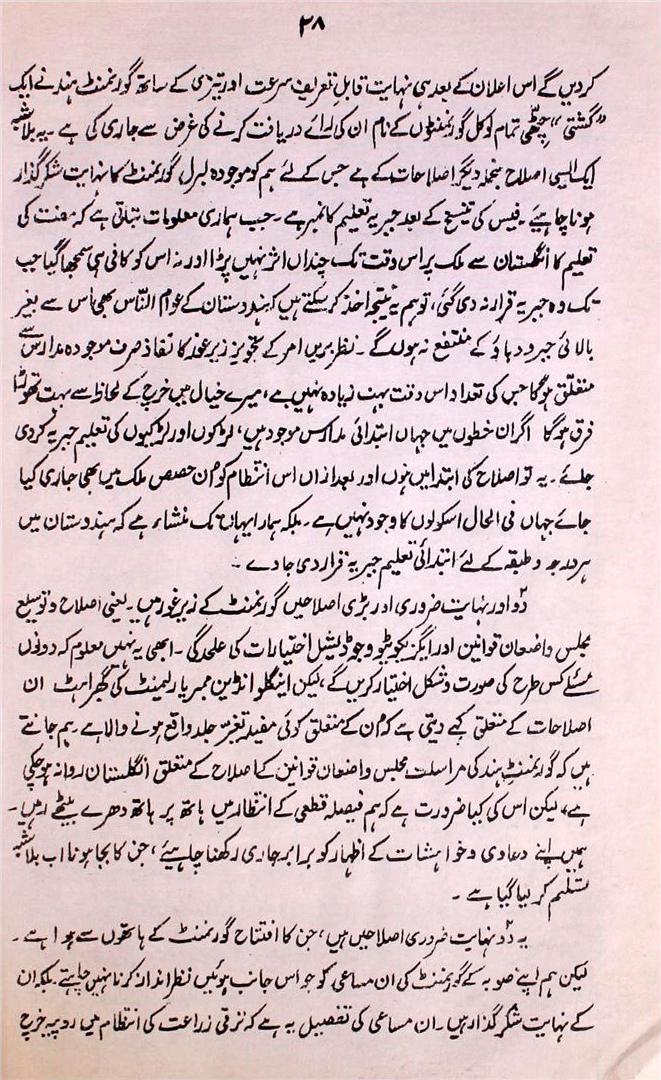 ۲۸
کردیں گے اس اعلان کے بعد ہی نہایت قابل تعریف سرعت اور تیزی کے ساتھ گورنمنٹ ہند نے ایک
"گشتی" چٹھی تمام لوکل گورنمنٹوں کے نام ان کی رائے دریافت کرنے کی غرض سے جاری کی ہے ۔ یہ بلاشبہ
ایک ایسی اصلاح منجملہ دیگر اصلاحات کے ہے جس کے لئے ہم کو موجودہ لبرل گورنمنٹ کا نہایت شکر گذار
ہونا چاہیئے ۔ فیس کی تنسیخ کے بعد جبریہ تعلیم کا نمبر ہے ۔ جب ہماری معلومات بتاتی ہے کہ مفت کی
تعلیم کا انگلستان سے ملک پر اس وقت تک چنداں اثر نہیں پڑا اور نہ اس کو کافی ہی سمجھا گیا جب
تک وہ جبریہ قرار نہ دی گئی، تو ہم یہ نتیجہ اخذ کر سکتے ہیں کہ ہندوستان کے عوام الناس بھی اُس سے بغیر
بالائی جبر و دباؤ کے منتفع نہ ہوں گے ۔ نظر بریں امر کے تجویز زیر غور کا نفاذ صرف موجودہ مدارس سے
متعلق ہو گا جس کی تعداد اس وقت بہت زیادہ نہیں ہے، میرے خیال میں خرچ کے لحاظ سے بہت تھوڑا
فرق ہو گا اگر ان خطوں میں جہاں ابتدائی مدارس موجود ہیں، لڑکوں اور لڑکیوں کی تعلیم جبریہ کر دی
جائے ۔ یہ تو اصلاح کی ابتدا میں ہوں اور بعد ازاں اس انتظام کو اُن حصص ملک میں بھی جاری کیا
جائے جہاں فی الحال اسکولوں کا وجود نہیں ہے ۔ بلکہ ہمارا یہاں تک منشاء ہے کہ ہندوستان میں
ہر درجہ و طبقہ کے لئے ابتدائی تعلیم جبریہ قرار دی جاوے ۔
دو اور نہایت ضروری اور بڑی اصلاحیں گورنمنٹ کے زیر غور ہیں ۔ یعنی اصلاح و توسیع
مجلس واضعان قوانین اور ایگزیکوٹیو و جوڈیشل اختیارات کی علحدگی ۔ ابھی یہ نہیں معلوم کہ دونوں
مسئلے کس طرح کی صورت و شکل اختیار کریں گے، لیکن اینگلو انڈین ممبر پارلیمنٹ کی گھبراہٹ ان
اصلاحات کے متعلق کہے دیتی ہے کہ اُن کے متعلق کوئی مفید تغیر جلد واقع ہونے والا ہے ۔ ہم جانتے
ہیں کہ گورنمنٹ ہند کی مراسلت مجلس واضعان قوانین کے اصلاح کے متعلق انگلستان روانہ ہو چکی
ہے، لیکن اس کی کیا ضرورت ہے کہ ہم فیصلہ قطعی کے انتظار میں ہاتھ پر ہاتھ دھرے بیٹھے رہیں ۔
ہمیں اپنے دعاوی و خواہشات کے اظہار کو برابر جاری رکھنا چاہیئے، جن کا بجا ہونا اب بلاشبہ
تسلیم کر لیا گیا ہے ۔
یہ دو نہایت ضروری اصلاحیں ہیں، جن کا افتتاح گورنمنٹ کے ہاتھوں سے ہوا ہے ۔
لیکن ہم اپنے صوبہ کے گورنمنٹ کی ان مساعی کو جو اس جانب ہوئیں نظر انداز کرنا نہیں چاہتے ۔ بلکہ ان
کے نہایت شکر گذار ہیں ۔ ان مساعی کی تفصیل یہ ہے کہ ترقی زراعت کی انتظام میں روپیہ خرچ